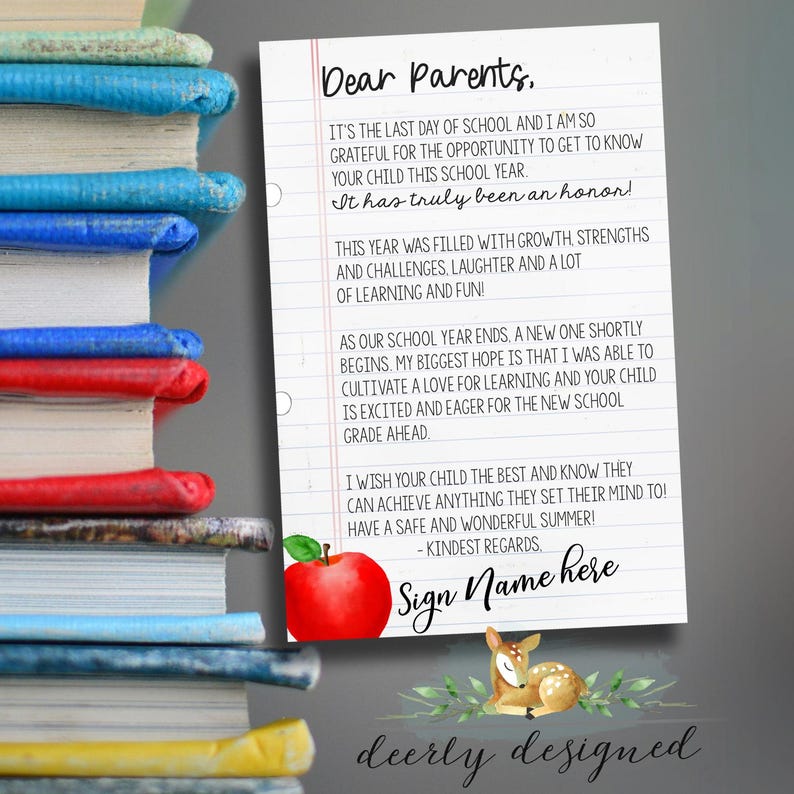 Dear Parents,
IT'S THE LAST DAY OF SCHOOL AND I AM SO
GRATEFUL FOR THE OPPORTUNITY TO GET TO KNOW
YOUR CHILD THIS SCHOOL YEAR.
It has truly been an honor!
THIS YEAR WAS FILLED WITH GROWTH, STRENGTHS
AND CHALLENGES, LAUGHTER AND A LOT
OF LEARNING AND FUN!
AS OUR SCHOOL YEAR ENDS, A NEW ONE SHORTLY
BEGINS. MY BIGGEST HOPE IS THAT I WAS ABLE TO
CULTIVATE A LOVE FOR LEARNING AND YOUR CHILD
IS EXCITED AND EAGER FOR THE NEW SCHOOL
GRADE AHEAD.
I WISH YOUR CHILD THE BEST AND KNOW THEY
CAN ACHIEVE ANYTHING THEY SET THEIR MIND TO!
HAVE A SAFE AND WONDERFUL SUMMER!
- KINDEST REGARDS,
Sign Name here
deerly designed